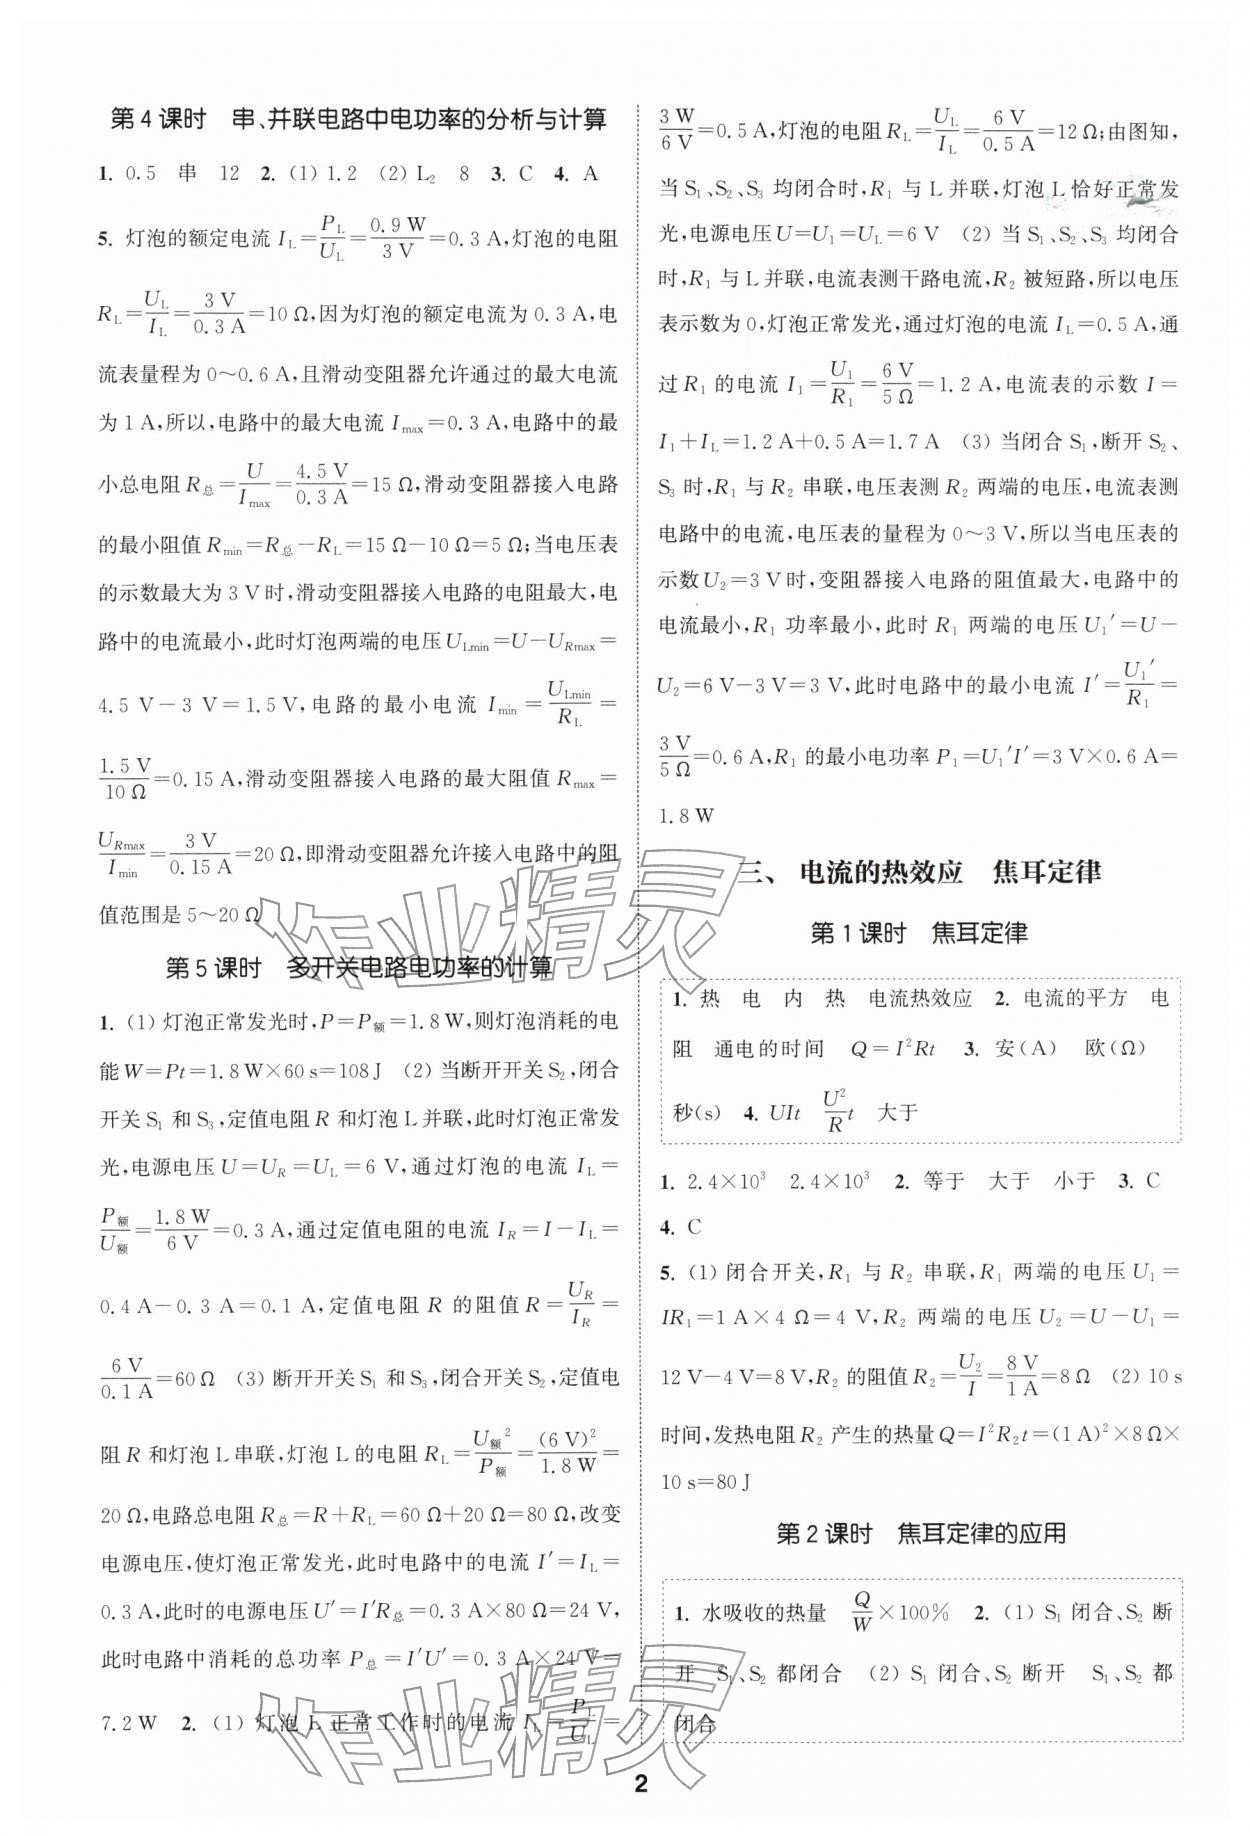 第 4 课时 串、并联电路中电功率的分析与计算
1. 0.5 串 12 2. (1) 1.2 (2) L₂ 8 3. C 4. A
5. 灯泡的额定电流 I_L=P_L/U_L=0.9 W/3 V=0.3 A,灯泡的电阻
R_L=U_L/I_L=3 V/0.3 A=10 Ω,因为灯泡的额定电流为 0.3 A,电
流表量程为 0～0.6 A,且滑动变阻器允许通过的最大电流
为 1 A,所以,电路中的最大电流 I_max=0.3 A,电路中的最
小总电阻 R_总=U/I_max=4.5 V/0.3 A=15 Ω,滑动变阻器接入电路
的最小阻值 R_min=R_总-R_L=15 Ω-10 Ω=5 Ω;当电压表
的示数最大为 3 V 时,滑动变阻器接入电路的电阻最大,电
路中的电流最小,此时灯泡两端的电压 U_Lmin=U-U_Rmax=
4.5 V-3 V=1.5 V,电路的最小电流 I_min=U_Lmin/R_L=
1.5 V/10 Ω=0.15 A,滑动变阻器接入电路的最大阻值 R_max=
U_Rmax/I_min=3 V/0.15 A=20 Ω,即滑动变阻器允许接入电路中的阻
值范围是 5～20 Ω
第 5 课时 多开关电路电功率的计算
1. (1) 灯泡正常发光时,P=P_额=1.8 W,则灯泡消耗的电
能 W=Pt=1.8 W×60 s=108 J (2) 当断开开关 S₂,闭合
开关 S₁ 和 S₃,定值电阻 R 和灯泡 L 并联,此时灯泡正常发
光,电源电压 U=U_R=U_L=6 V,通过灯泡的电流 I_L=
P_额/U_额=1.8 W/6 V=0.3 A,通过定值电阻的电流 I_R=I-I_L=
0.4 A-0.3 A=0.1 A,定值电阻 R 的阻值 R=U_R/I_R=
6 V/0.1 A=60 Ω (3) 断开开关 S₁ 和 S₃,闭合开关 S₂,定值电
阻 R 和灯泡 L 串联,灯泡 L 的电阻 R_L=U_额²/P_额=(6 V)²/1.8 W=
20 Ω,电路总电阻 R_总=R+R_L=60 Ω+20 Ω=80 Ω,改变
电源电压,使灯泡正常发光,此时电路中的电流 I′=I_L=
0.3 A,此时的电源电压 U′=I′R_总=0.3 A×80 Ω=24 V,
此时电路中消耗的总功率 P_总=I′U′=0.3 A×24 V=
7.2 W 2. (1) 灯泡 L 正常工作时的电流 I_L=P_L/U_L=
3 W/6 V=0.5 A,灯泡的电阻 R_L=U_L/I_L=6 V/0.5 A=12 Ω;由图知,
当 S₁、S₂、S₃ 均闭合时,R₁ 与 L 并联,灯泡 L 恰好正常发
光,电源电压 U=U₁=U_L=6 V (2) 当 S₁、S₂、S₃ 均闭合
时,R₁ 与 L 并联,电流表测干路电流,R₂ 被短路,所以电压
表示数为 0,灯泡正常发光,通过灯泡的电流 I_L=0.5 A,通
过 R₁ 的电流 I₁=U₁/R₁=6 V/5 Ω=1.2 A,电流表的示数 I=
I₁+I_L=1.2 A+0.5 A=1.7 A (3) 当闭合 S₁,断开 S₂、
S₃ 时,R₁ 与 R₂ 串联,电压表测 R₂ 两端的电压,电流表测
电路中的电流,电压表的量程为 0～3 V,所以当电压表的
示数 U₂=3 V 时,变阻器接入电路的阻值最大,电路中的
电流最小,R₁ 功率最小,此时 R₁ 两端的电压 U₁′=U-
U₂=6 V-3 V=3 V,此时电路中的最小电流 I′=U₁′/R₁=
3 V/5 Ω=0.6 A,R₁ 的最小电功率 P₁=U₁′I′=3 V×0.6 A=
1.8 W
三、 电流的热效应 焦耳定律
第 1 课时 焦耳定律
1. 热 电 内 热 电流热效应 2. 电流的平方 电
阻 通电的时间 Q=I²Rt 3. 安(A) 欧(Ω)
秒(s) 4. UIt U²/R t 大于
1. 2.4×10³ 2.4×10³ 2. 等于 大于 小于 3. C
4. C
5. (1) 闭合开关,R₁ 与 R₂ 串联,R₁ 两端的电压 U₁=
IR₁=1 A×4 Ω=4 V,R₂ 两端的电压 U₂=U-U₁=
12 V-4 V=8 V,R₂ 的阻值 R₂=U₂/I=8 V/1 A=8 Ω (2) 10 s
时间,发热电阻 R₂ 产生的热量 Q=I²R₂t=(1 A)²×8 Ω×
10 s=80 J
第 2 课时 焦耳定律的应用
1. 水吸收的热量 Q/W×100% 2. (1) S₁ 闭合、S₂ 断
开 S₁、S₂ 都闭合 (2) S₁ 闭合、S₂ 断开 S₁、S₂ 都
闭合
2
作业精灵
作业精灵